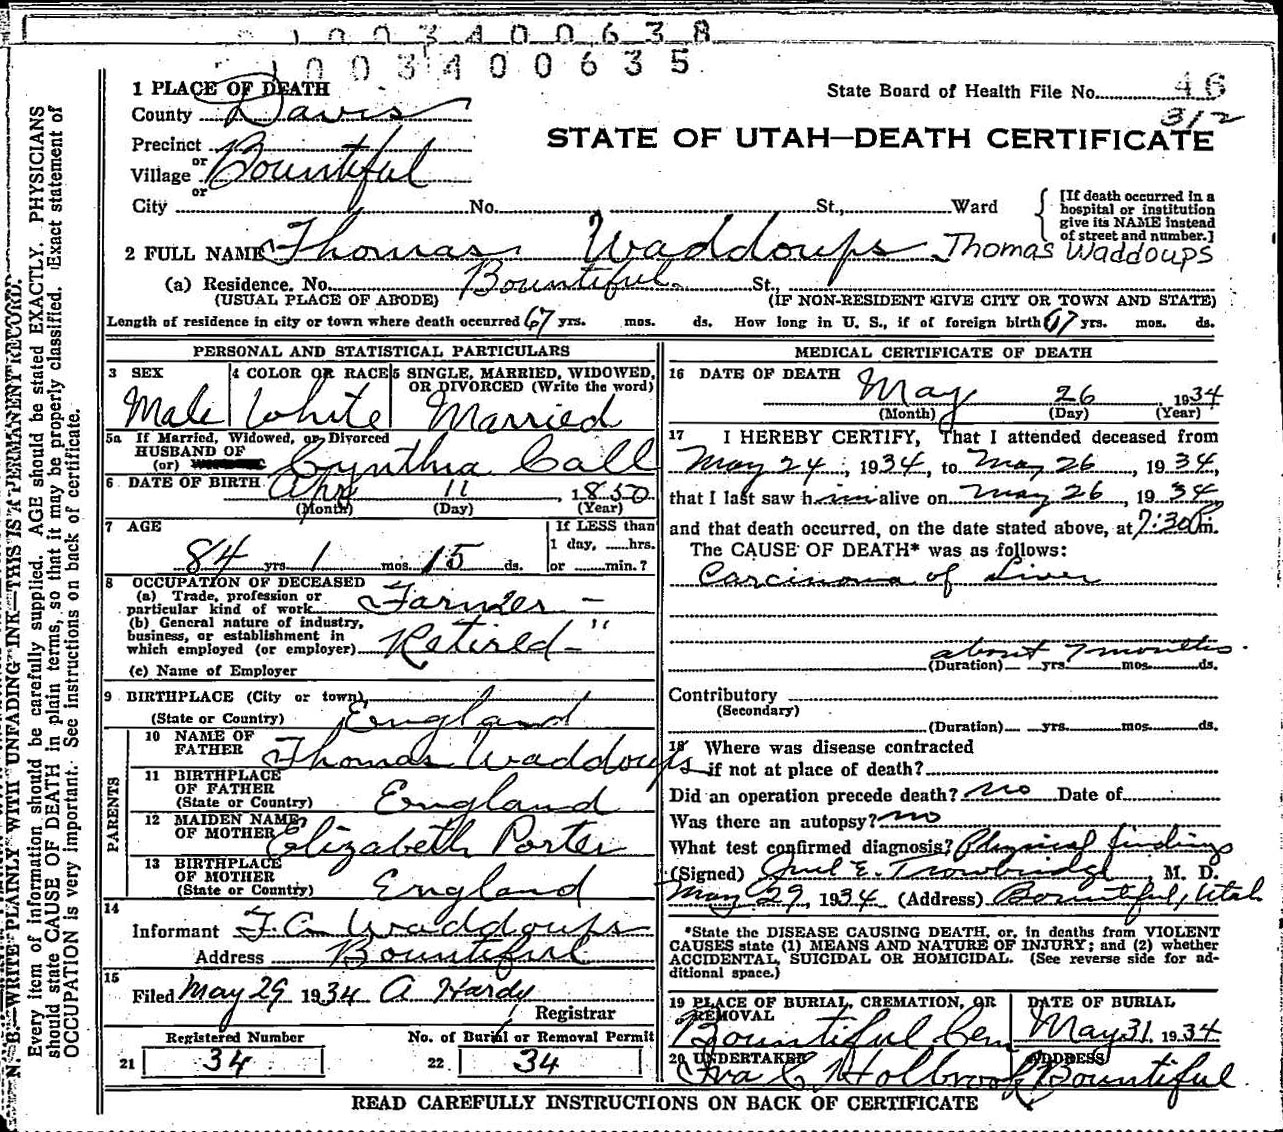 1003400638
1003400635
1 PLACE OF DEATH
County Davis
State Board of Health File No. 46
312
STATE OF UTAH—DEATH CERTIFICATE
Precinct
or
Village Bountiful
or
City No. St., Ward
[If death occurred in a
hospital or institution
give its NAME instead
of street and number.]
2 FULL NAME Thomas Waddoups Thomas Waddoups
(a) Residence. No. Bountiful St.,
(USUAL PLACE OF ABODE) (IF NON-RESIDENT GIVE CITY OR TOWN AND STATE)
Length of residence in city or town where death occurred 67 yrs. mos. ds. How long in U. S., if of foreign birth 67 yrs. mos. ds.
PERSONAL AND STATISTICAL PARTICULARS
3 SEX 4 COLOR OR RACE 5 SINGLE, MARRIED, WIDOWED,
OR DIVORCED (Write the word)
Male White Married
5a If Married, Widowed, or Divorced
HUSBAND OF
(or) Cynthia Call
6 DATE OF BIRTH Apr 11, 1850
(Month) (Day) (Year)
7 AGE If LESS than
1 day, ......hrs.
84 yrs. 1 mos. 15 ds. or ........min.?
8 OCCUPATION OF DECEASED
(a) Trade, profession or
particular kind of work Farmer -
(b) General nature of industry,
business, or establishment in
which employed (or employer) Retired - "
(c) Name of Employer
9 BIRTHPLACE (City or town)
(State or Country) England
PARENTS
10 NAME OF
FATHER Thomas Waddoups
11 BIRTHPLACE
OF FATHER
(State or Country) England
12 MAIDEN NAME
OF MOTHER Elizabeth Porter
13 BIRTHPLACE
OF MOTHER
(State or Country) England
14
Informant T. A. Waddoups
Address Bountiful
15
Filed May 29 1934 A Hardy
Registrar
Registered Number No. of Burial or Removal Permit
21 34 22 34
MEDICAL CERTIFICATE OF DEATH
16 DATE OF DEATH
May 26 1934
(Month) (Day) (Year)
17 I HEREBY CERTIFY, That I attended deceased from
May 24, 1934, to May 26, 1934,
that I last saw him alive on May 26, 1934
and that death occurred, on the date stated above, at 7:30 P.m.
The CAUSE OF DEATH* was as follows:
Carcinoma of Liver
about 7 months.
(Duration) yrs. mos. ds.
Contributory
(Secondary)
(Duration) yrs. mos. ds.
18 Where was disease contracted
if not at place of death?
Did an operation precede death? no Date of
Was there an autopsy? no
What test confirmed diagnosis? Physical findings
(Signed) E. Trowbridge, M. D.
May 29, 1934 (Address) Bountiful, Utah
*State the DISEASE CAUSING DEATH, or, in deaths from VIOLENT
CAUSES state (1) MEANS AND NATURE OF INJURY; and (2) whether
ACCIDENTAL, SUICIDAL OR HOMICIDAL. (See reverse side for ad-
ditional space.)
19 PLACE OF BURIAL, CREMATION, OR
REMOVAL DATE OF BURIAL
Bountiful Cem May 31, 1934
20 UNDERTAKER ADDRESS
Iva C. Holbrook Bountiful
READ CAREFULLY INSTRUCTIONS ON BACK OF CERTIFICATE
N. B.—WRITE PLAINLY WITH UNFADING INK—THIS IS A PERMANENT RECORD.
Every item of information should be carefully supplied. AGE should be stated EXACTLY. PHYSICIANS
should state CAUSE OF DEATH in plain terms, so that it may be properly classified. Exact statement of
OCCUPATION is very important. See instructions on back of certificate.